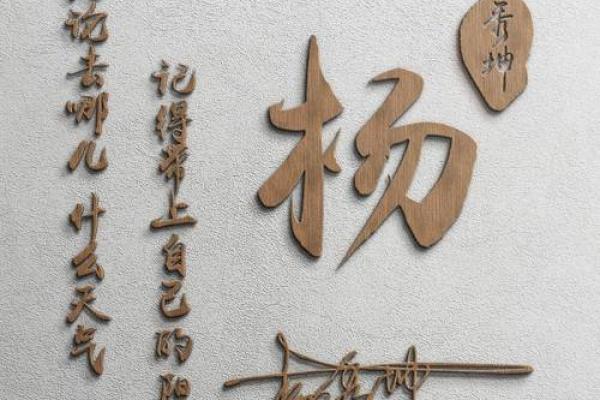 论去哪儿 什么天气
记得带上自己的阳
杨
秀坤
杨秀坤